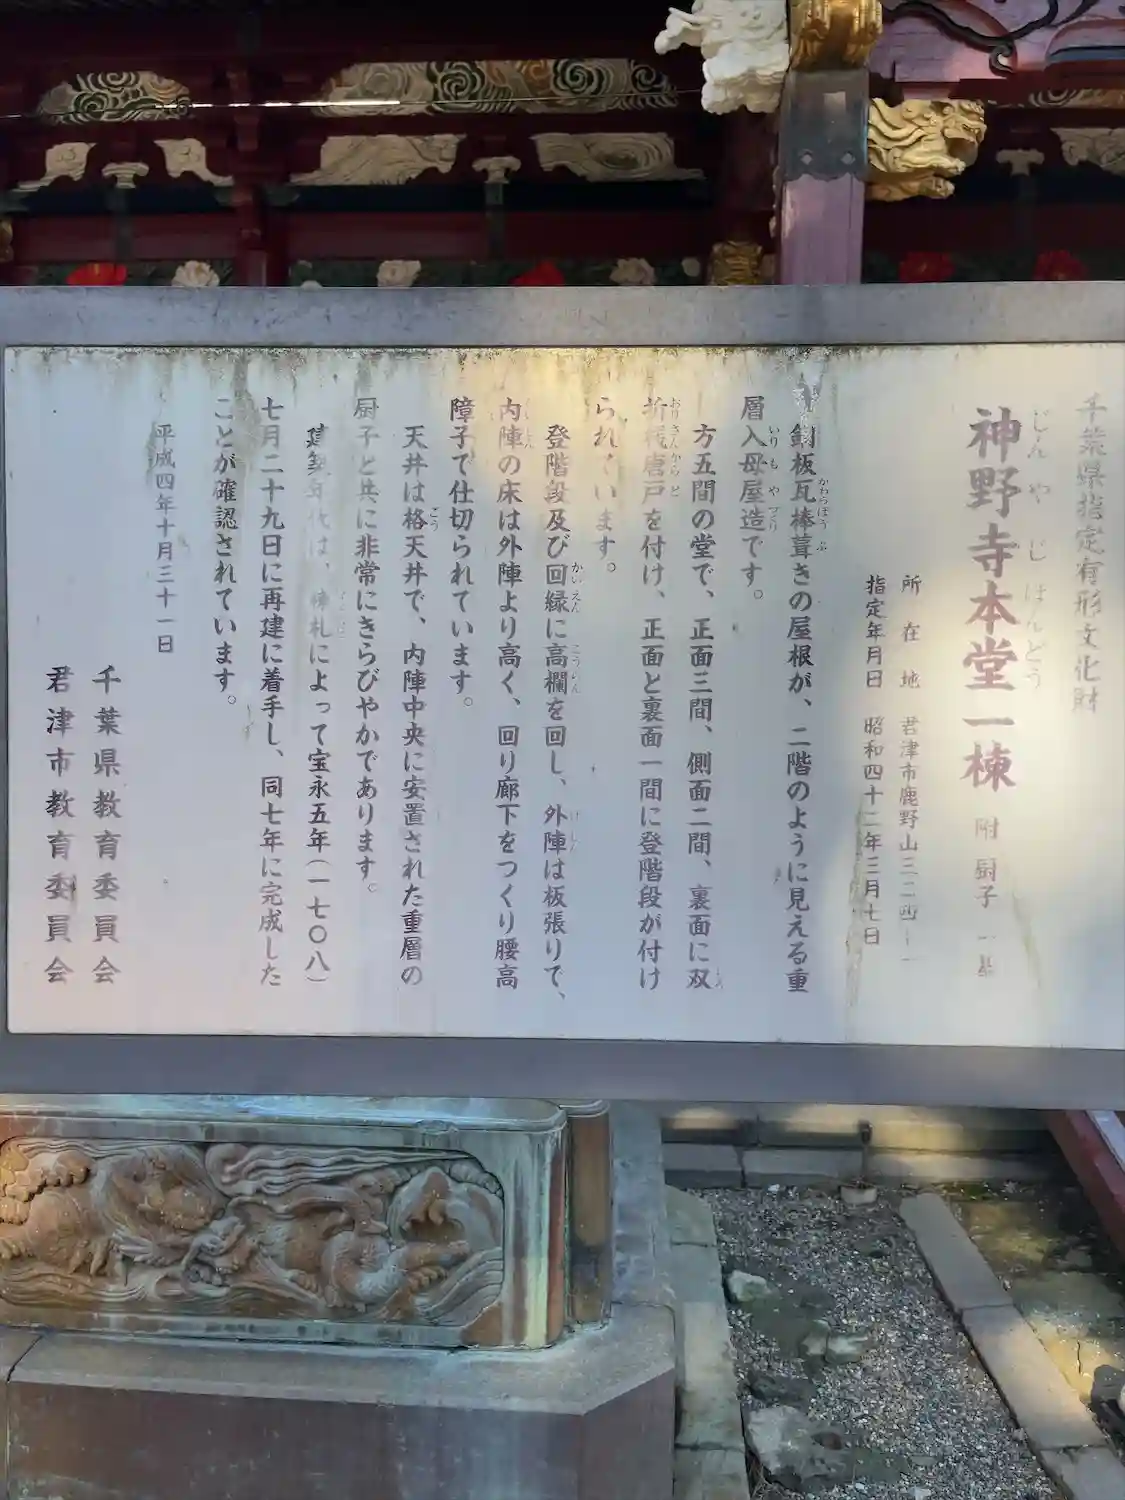 千葉県指定有形文化財
神野寺本堂一棟 附 厨子 一基
じんやじほんどう
所在地 君津市鹿野山三二四ー一
指定年月日 昭和四十二年三月七日
銅板瓦棒葺きの屋根が、二階のように見える重
層入母屋造です。
方五間の堂で、正面三間、側面二間、裏面に双
折桟唐戸を付け、正面と裏面一間に登階段が付け
られています。
登階段及び回縁に高欄を回し、外陣は板張りで、
内陣の床は外陣より高く、回り廊下をつくり腰高
障子で仕切られています。
天井は格天井で、内陣中央に安置された重層の
厨子と共に非常にきらびやかであります。
建築年代は、棟札によって宝永五年(一七〇八)
七月二十九日に再建に着手し、同七年に完成した
ことが確認されています。
平成四年十月三十一日
千葉県教育委員会
君津市教育委員会